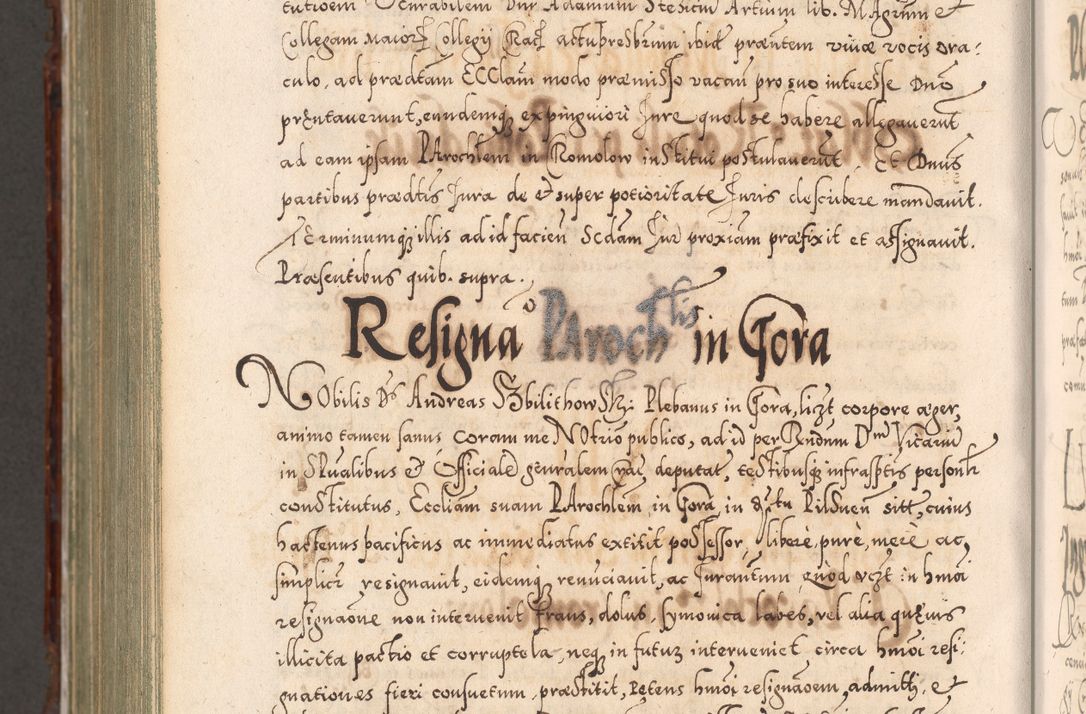 tutioem Venerabilem Dnr Adamum Stebicki Artium lib. MAgrum et
Collegam Maior Collegÿ Rac actu presbrum ibid præntem vivæ vocis ora:
culo, ad prædtam ECClam modo præmisso vacan pro suo interesse Dno
prntaverunt, eundemq ex pinguiori Jure quod se habere allegaverut
ad eam ipsam PArochlem in Romolow institui postulaverut. Et Dnus
partibus prædtis Jura de et super potioritate Juris describere mandavit.
TErminumq illis ad id facien Scdam Jur proxiam præfixit et assignavit.
Præsentibus quib. supra.
Resignao PArochlis in Gora
NObilis Ds Andreas Sbilithowski Plebanus in Gora, liczt corpore æger,
animo tamen sanus coram me NOtrio publico, ad id per Rndum Dm Vicariu
in SPualibus et Officiale genralem deputat, testibusq infrasptis personlr
constitutus, Eccliam suam PArochlem in Gora in Pilsnen sitt, cuius
hactenus pacificus ac immediatus extitit possessor, libere, pure, mere ac,
simplicr resignavit, eidemq renuciavit, ac Jurantum Quod in hmoi
resignaone non intervenit fraus, dolus, symonica labes, vel alia quævis
illicita pactio et corruptela, neq in futur interveniet circa hmoi resi:
gnationes fieri consuetum præstitit, Petens hmoi resignaoem, admitti et